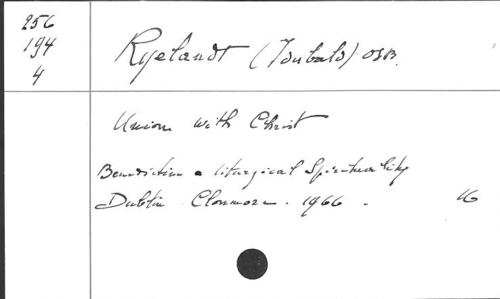 256
194
4
Ryelandt (Idubald) OSB.
Union with Christ
Benedictine & liturgical Spirituality
Dublin Clonmore. 1966.